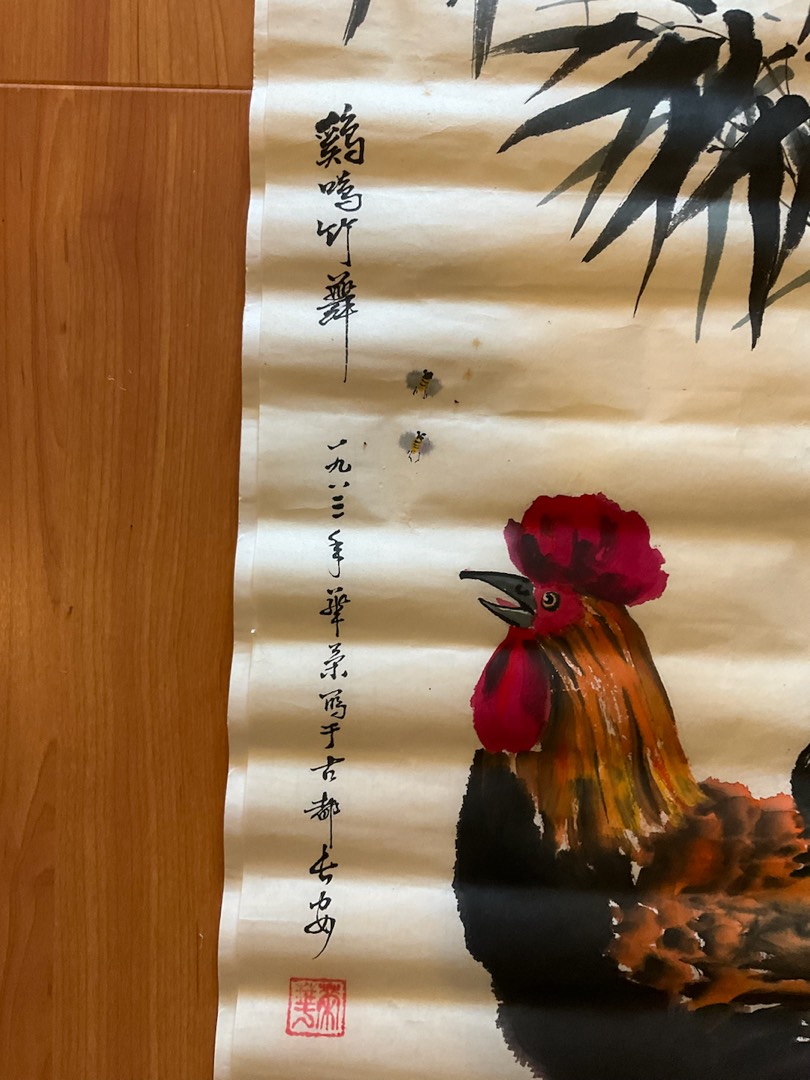 鷄鳴竹舞
一九八三年華榮寫于古都長安